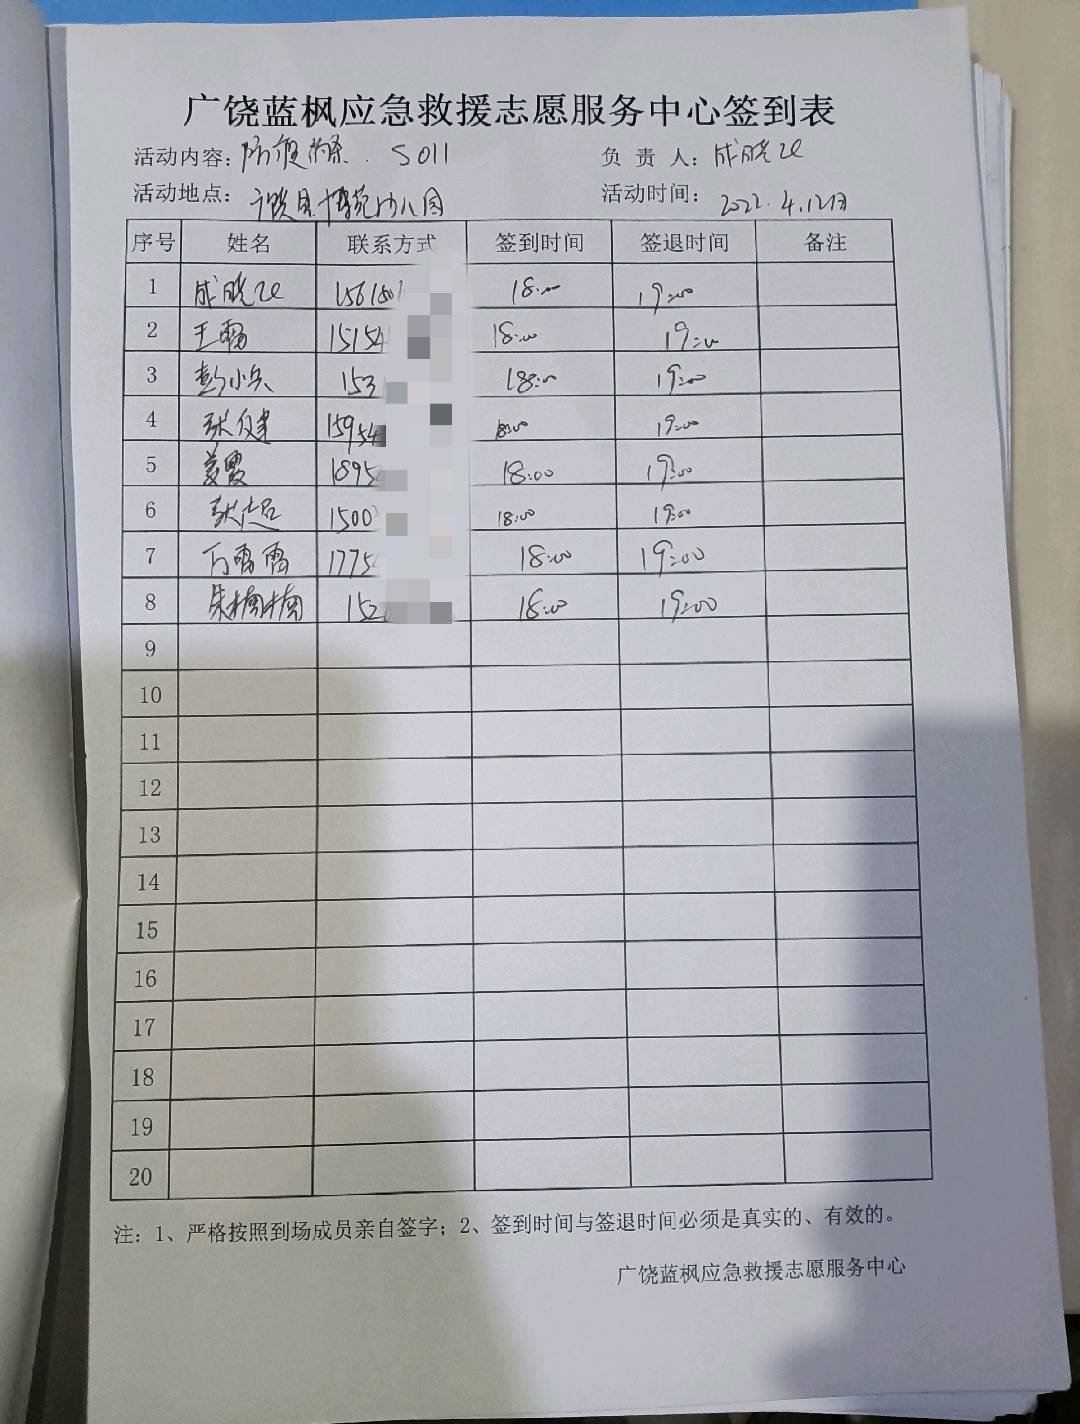 广饶蓝枫应急救援志愿服务中心签到表
活动内容：防疫消杀 S011 负责人：成晓
活动地点：广饶县博苑幼儿园 活动时间：2022.4.12日
序号 姓名 联系方式 签到时间 签退时间 备注
1 成晓 156180 18:00 19:00
2 王 15154 18:00 19:00
3 彭小兵 153 18:00 19:00
4 张健 15954 18:00 19:00
5 姜霞 1895 18:00 19:00
6 张志 1500 18:00 19:00
7 万雷雷 1775 18:00 19:00
8 朱楠楠 152 18:00 19:00
9
10
11
12
13
14
15
16
17
18
19
20
注：1、严格按照到场成员亲自签字；2、签到时间与签退时间必须是真实的、有效的。
广饶蓝枫应急救援志愿服务中心